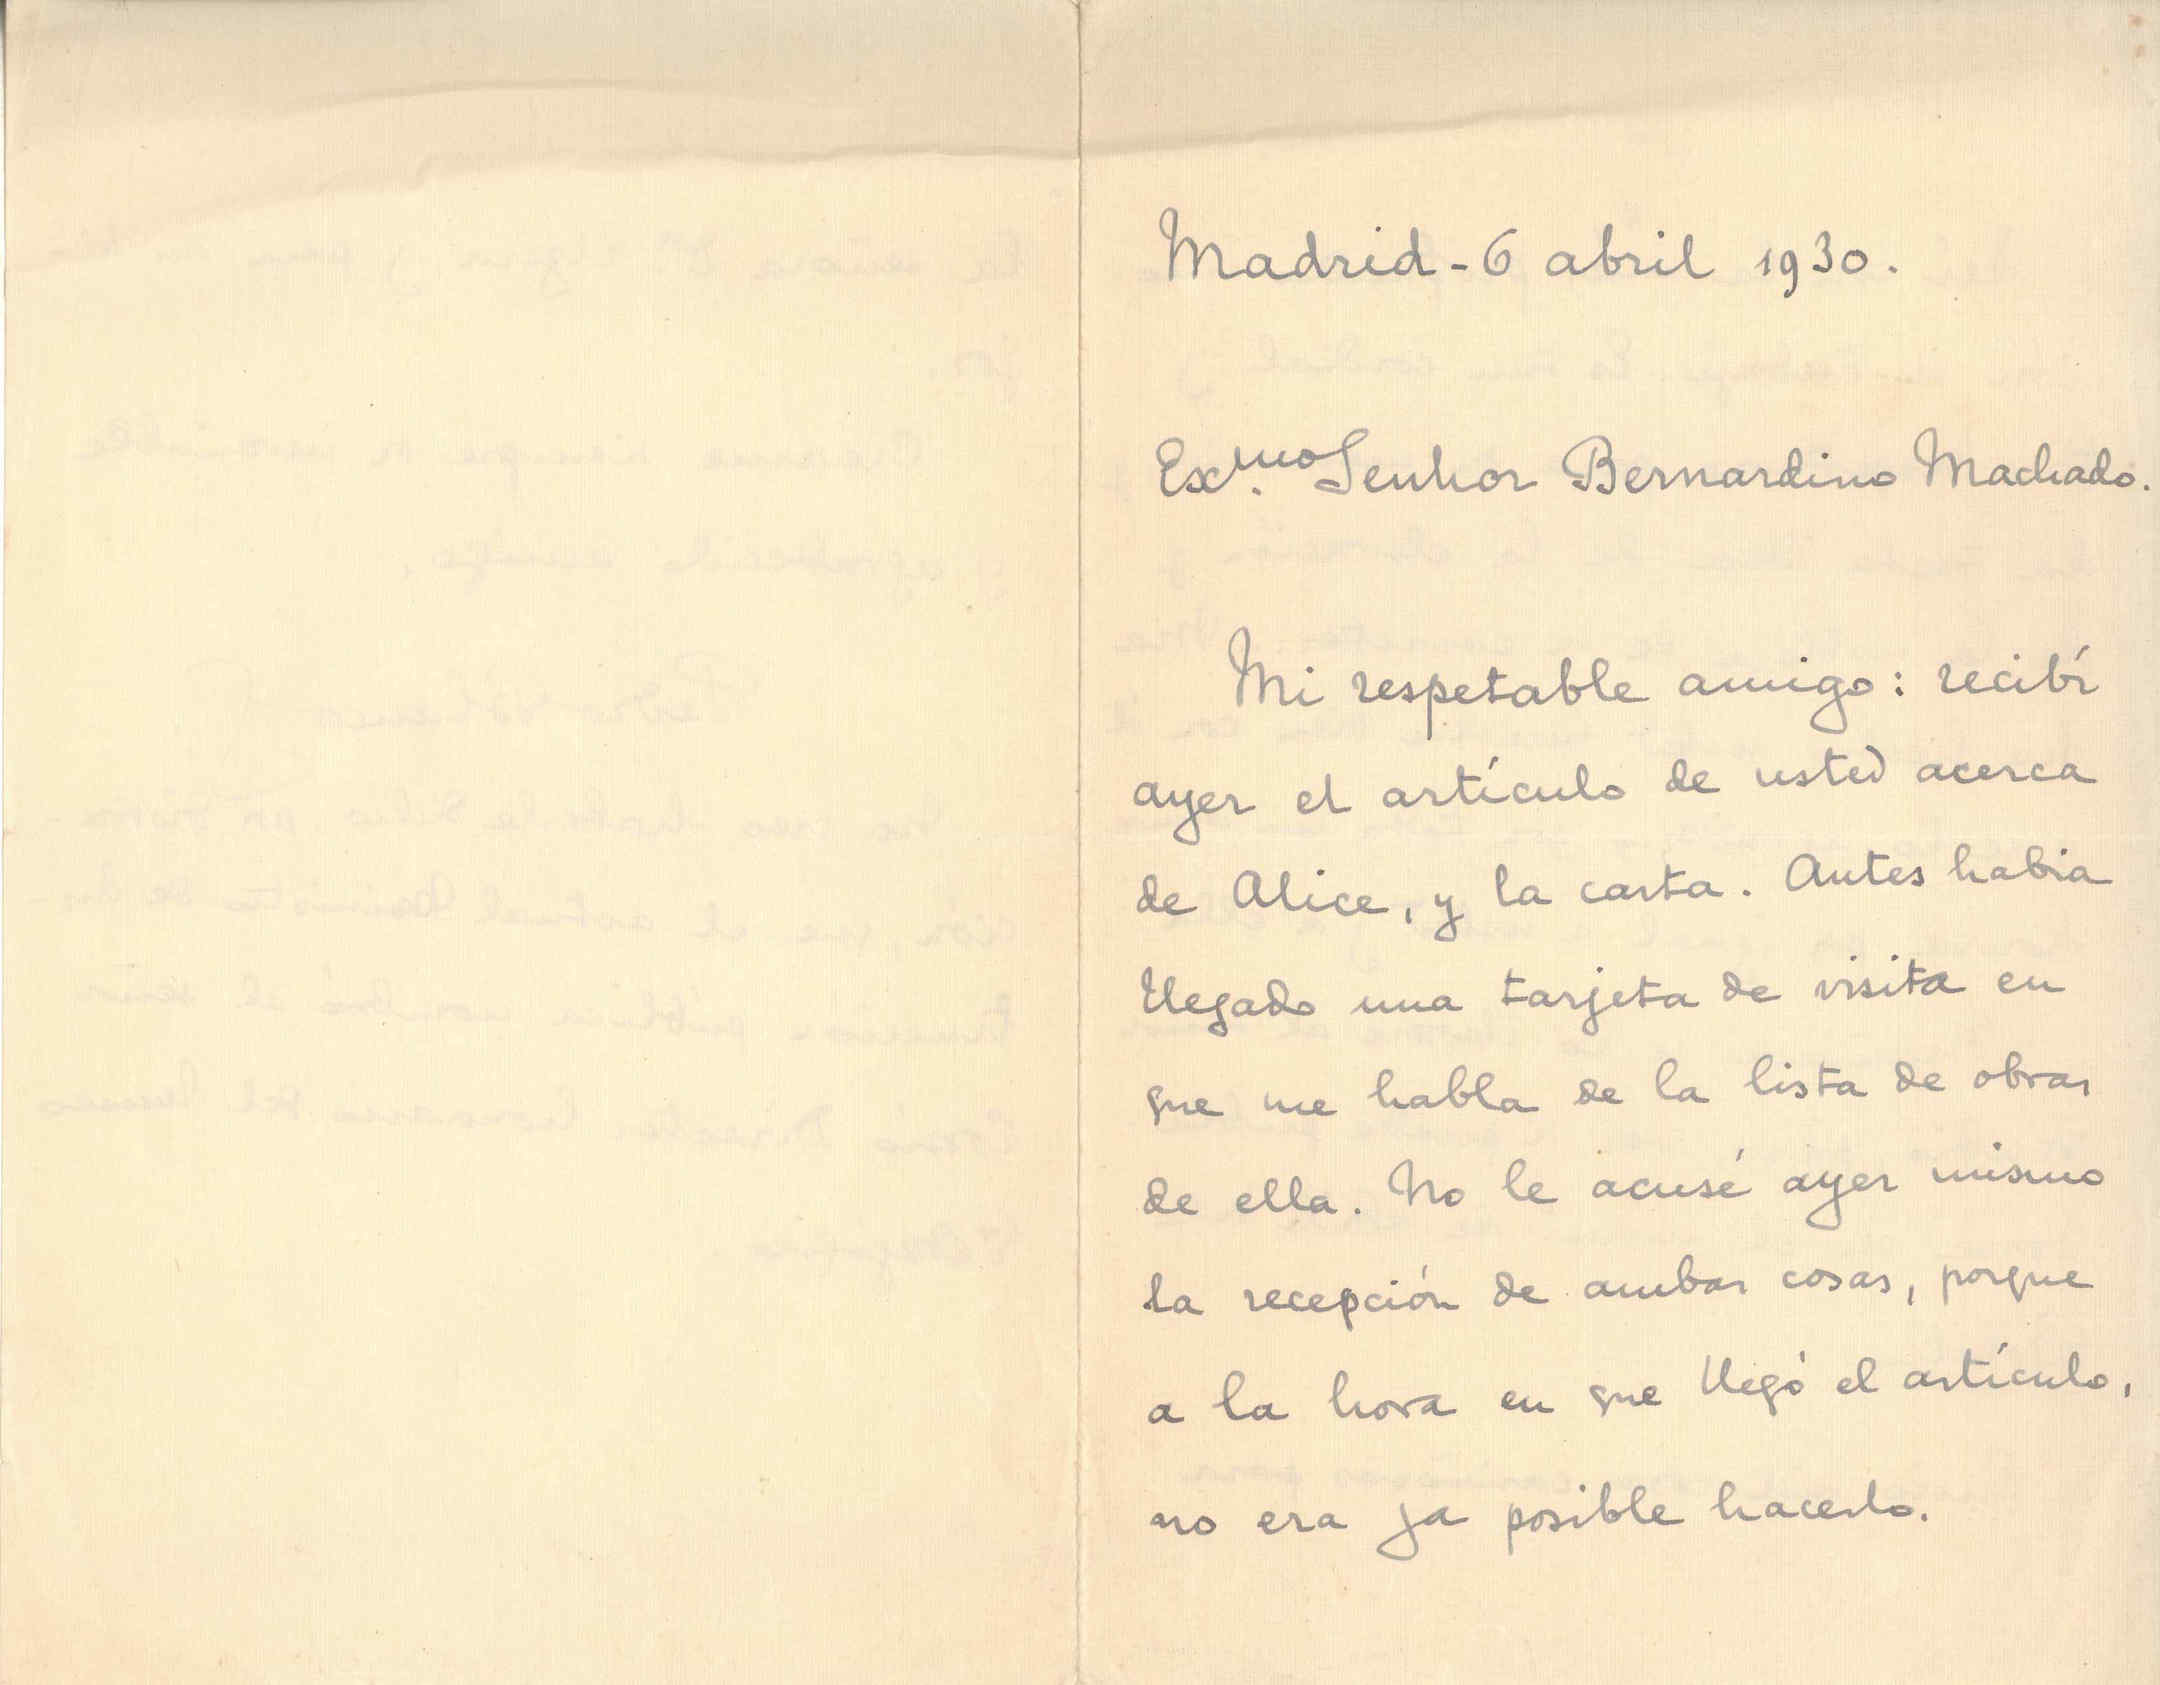 Madrid - 6 abril 1930.
Ex.mo Senhor Bernardino Machado.
Mi respetable amigo: recibí
ayer el artículo de usted acerca
de Alice, y la carta. Antes habia
llegado una tarjeta de visita en
que me habla de la lista de obras
de ella. No le acusé ayer mismo
la recepción de ambas cosas, porque
a la hora en que llegó el artículo,
no era ya posible hacerlo.